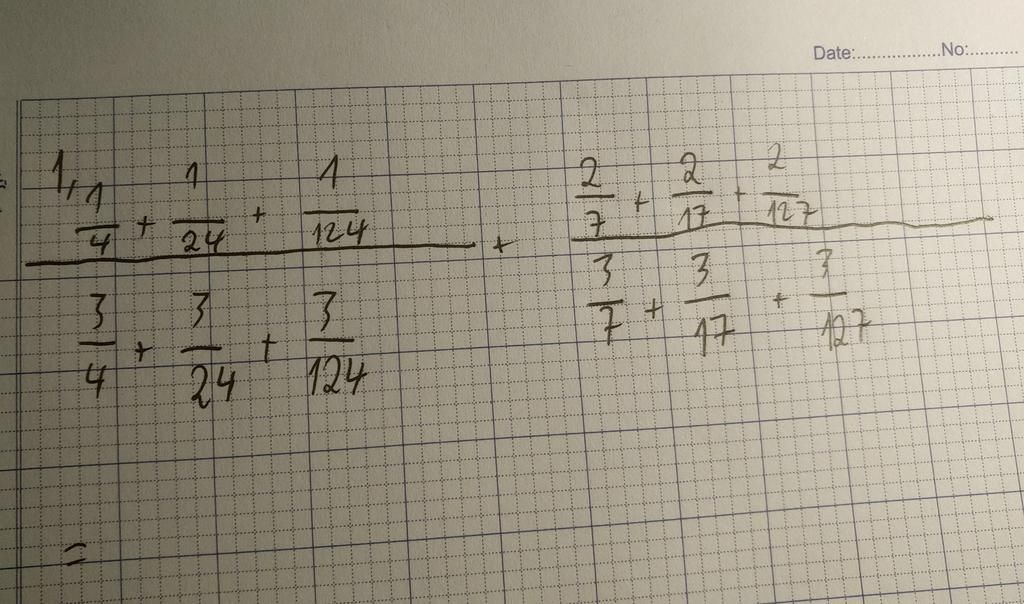 Date:.................No:..........
1, \frac{\frac{1}{4} + \frac{1}{24} + \frac{1}{124}}{\frac{3}{4} + \frac{3}{24} + \frac{3}{124}} + \frac{\frac{2}{7} + \frac{2}{17} + \frac{2}{127}}{\frac{3}{7} + \frac{3}{17} + \frac{3}{127}}
=